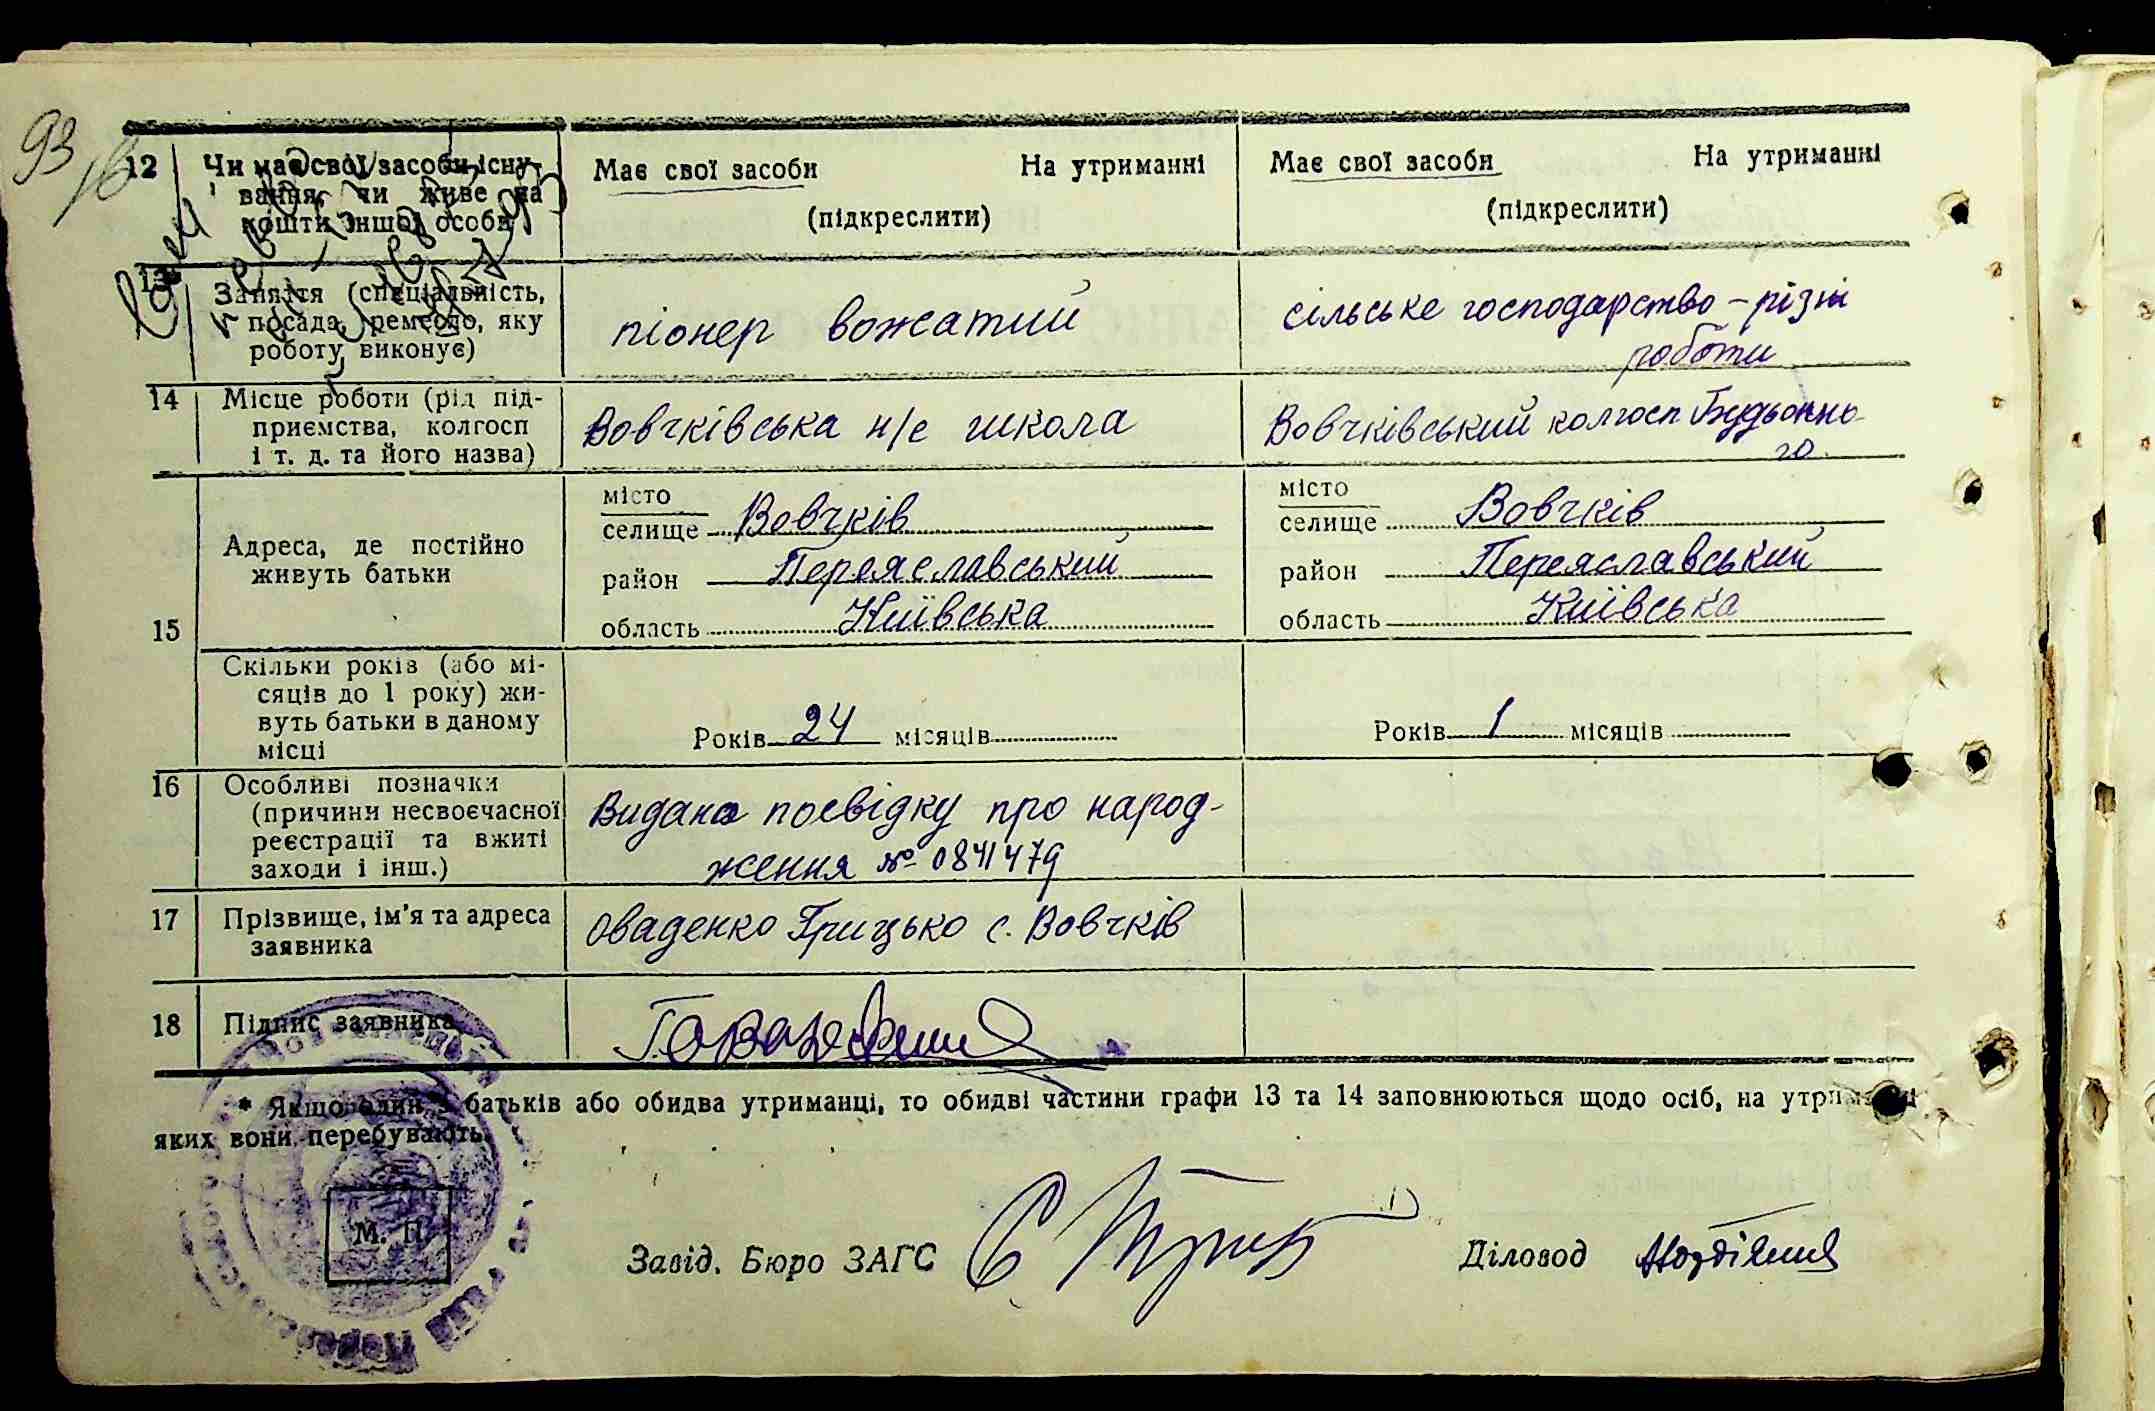 93
16
12 Чи має свої засоби існу-
вання, чи живе на
кошти іншої особи
Має свої засоби На утриманні
(підкреслити)
Має свої засоби На утриманні
(підкреслити)
13* Заняття (спеціальність,
посада, ремесло, яку
роботу виконує)
піонер вожатий
сільське господарство – різні
роботи
14 Місце роботи (рід під-
приємства, колгосп
і т. д. та його назва)
Вовчківська н/с школа
Вовчківський колгосп Будьонно-
го.
15 Адреса, де постійно
живуть батьки
місто
селище Вовчків
район Переяславський
область Київська
місто
селище Вовчків
район Переяславський
область Київська
Скільки років (або мі-
сяців до 1 року) жи-
вуть батьки в даному
місці
Років 24 місяців
Років 1 місяців
16 Особливі позначки
(причини несвоєчасної
реєстрації та вжиті
заходи і інш.)
Видано посвідку про народ-
ження № 0841479
17 Прізвище, ім'я та адреса
заявника
Оваденко Грицько с. Вовчків
18 Підпис заявника
* Якщо один з батьків або обидва утриманці, то обидві частини графи 13 та 14 заповнюються щодо осіб, на утриманні
яких вони перебувають.
М. П.
Завід. Бюро ЗАГС
Діловод